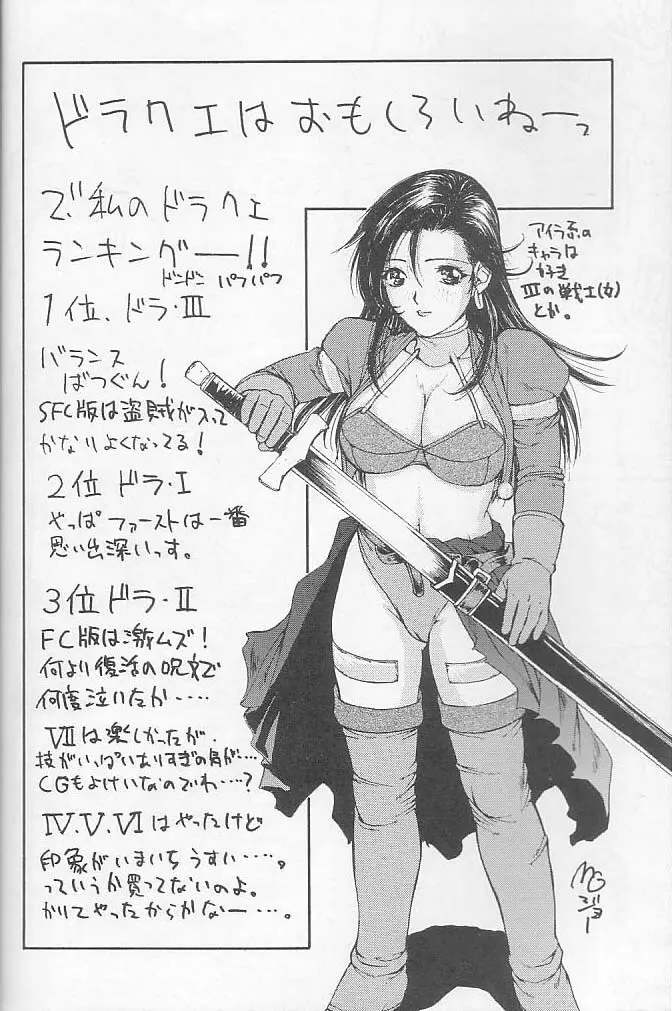 ドラクエはおもしろいねーっ
で、私のドラクエ
ランキングー!!
ドンドン パフパフ
1位、ドラ・III
バランス
ばつぐん!
SFC版は盗賊が入って
かなりよくなってる!
2位 ドラ・I
やっぱファーストは一番
思い出深いっす。
3位 ドラ・II
FC版は激ムズ!
何より復活の呪文で
何度泣いたか・・・・
VIIは楽しかったが、
技がいっぱいありすぎの気が・・・
CGもよけいなのでわ・・・・?
IV.V.VIはやったけど
印象がいまいちうすい・・・・。
っていうか買ってないのよ。
かりてやったからかなー・・・・。
アイラ系の
キャラは
好き
IIIの戦士(女)
とか。